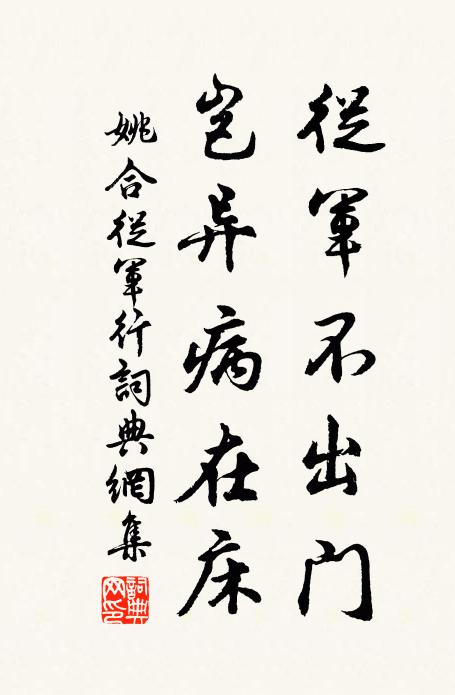 從軍不出門
豈异病在床
姚合從軍行詞典網集
詞典网印